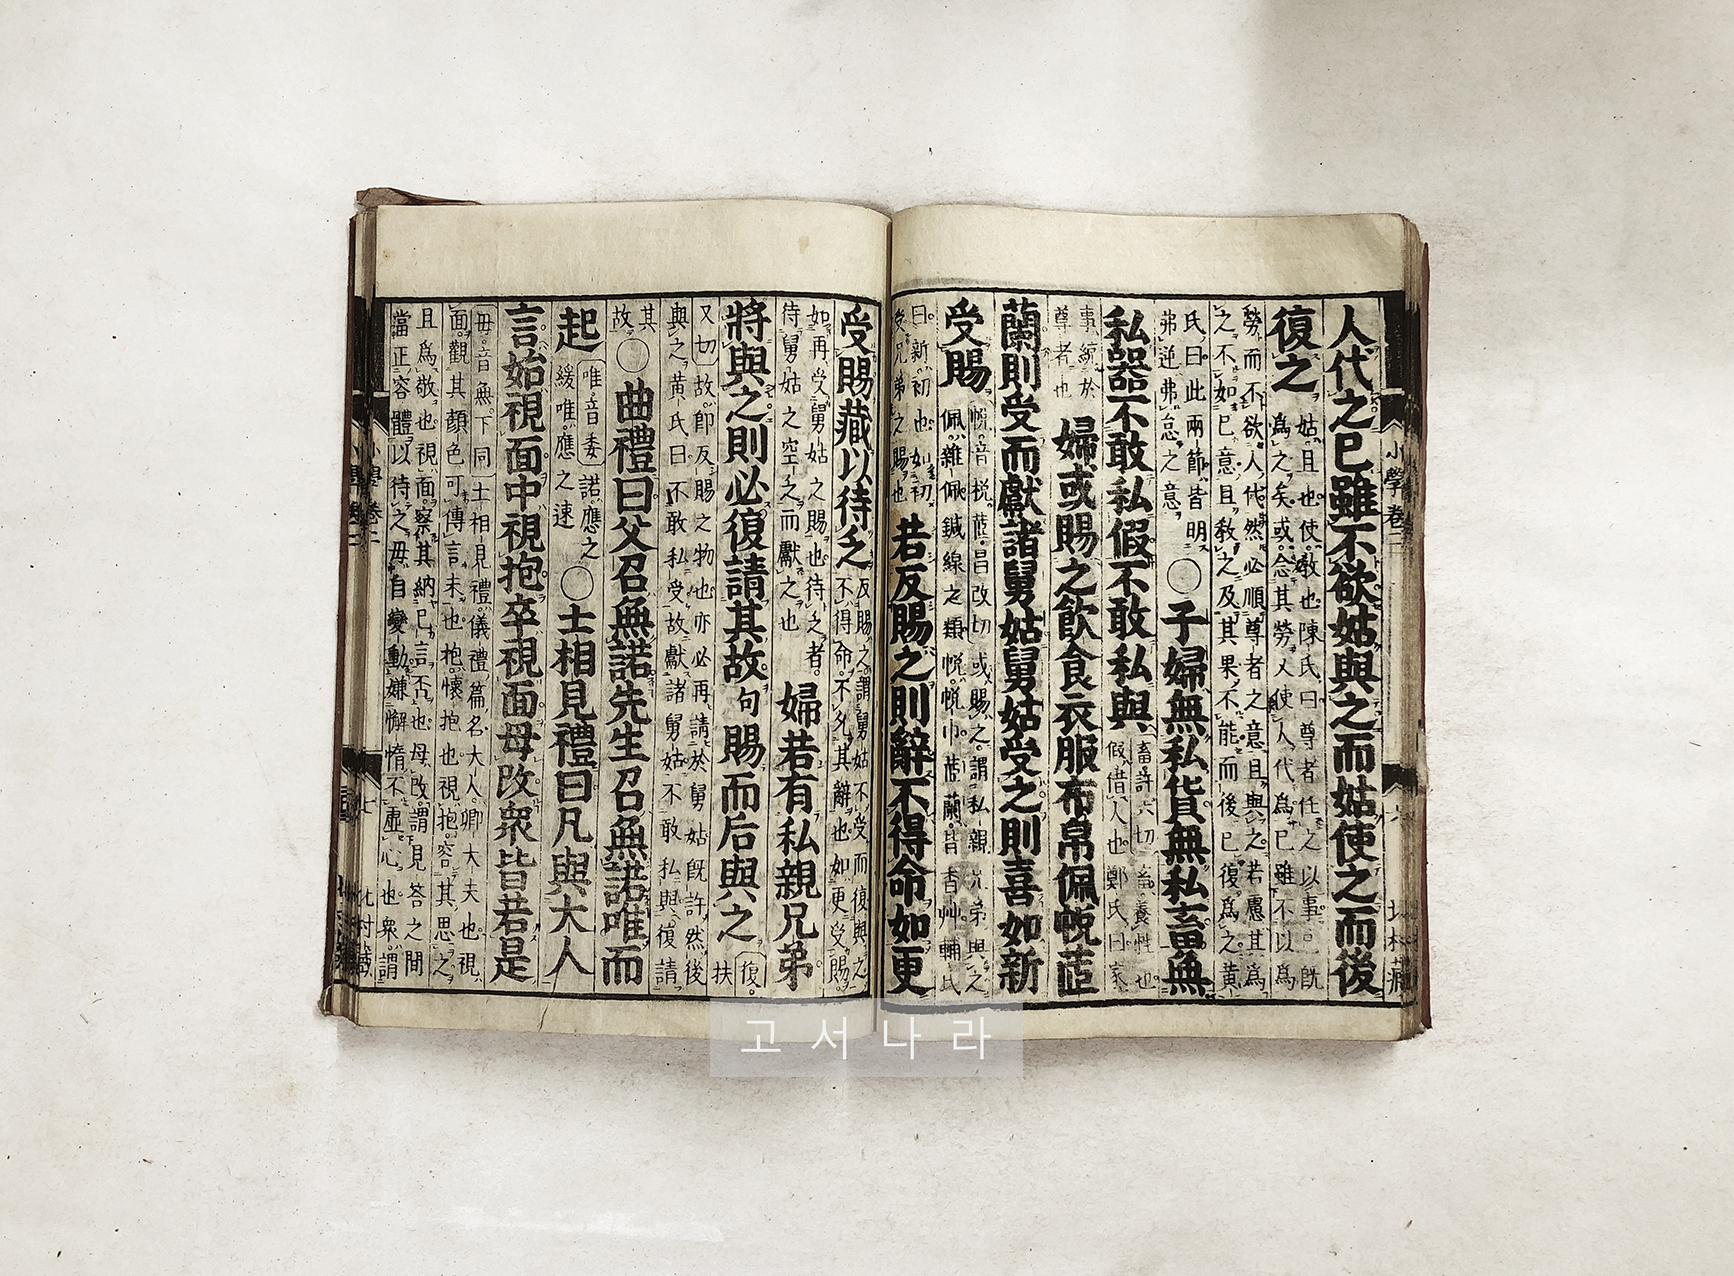 小學卷二 六 北村藏
人代之已雖不欲姑與之而姑使之而後
復之
姑且也使敎也陳氏曰尊者任之以事已旣
爲之矣或念其勞又使人代爲已雖不以爲
勞而不欲人代然必順尊者之意且與之若慮其爲
之不如已意且敎之及其果不能而後已復爲之黃
氏曰此兩節皆明
弗逆弗怠之意
○子婦無私貨無私畜無
私器不敢私假不敢私與
畜許六切畜養牲也
假借人也鄭氏曰家
事統於
尊者也
婦或賜之飮食衣服布帛佩帨茝
蘭則受而獻諸舅姑舅姑受之則喜如新
受賜
帨音稅茝昌改切或賜之謂私親兄弟與之
佩雜佩鍼線之類帨帨巾茝蘭皆香艸輔氏
曰新初也如初
受兄弟之賜也
若反賜之則辭不得命如更
受賜藏以待乏
反賜之謂舅姑不受而復與之
不得命不允其辭也如更受賜
如再受舅姑之賜也待乏者
待舅姑之空乏而獻之也
婦若有私親兄弟
將與之則必復請其故句賜而后與之
復扶
又切故卽反賜之物也亦必再請於舅姑旣許然後
與之黃氏曰不敢私受故獻諸舅姑不敢私與復請
其
故
○曲禮曰父召無諾先生召無諾唯而
起
唯音委諾應之
緩唯應之速
○士相見禮曰凡與大人
言始視面中視抱卒視面毋改衆皆若是
毋音無下同士相見禮儀禮篇名大人卿大夫也視
面觀其顏色可傳言未也抱懷抱也視抱容其思之
且爲敬也視面察其納已言否也毋改謂見答之間
當正容體以待之毋自變動嫌懈惰不虛心也衆謂
小學卷二 七 北村藏
고서나라